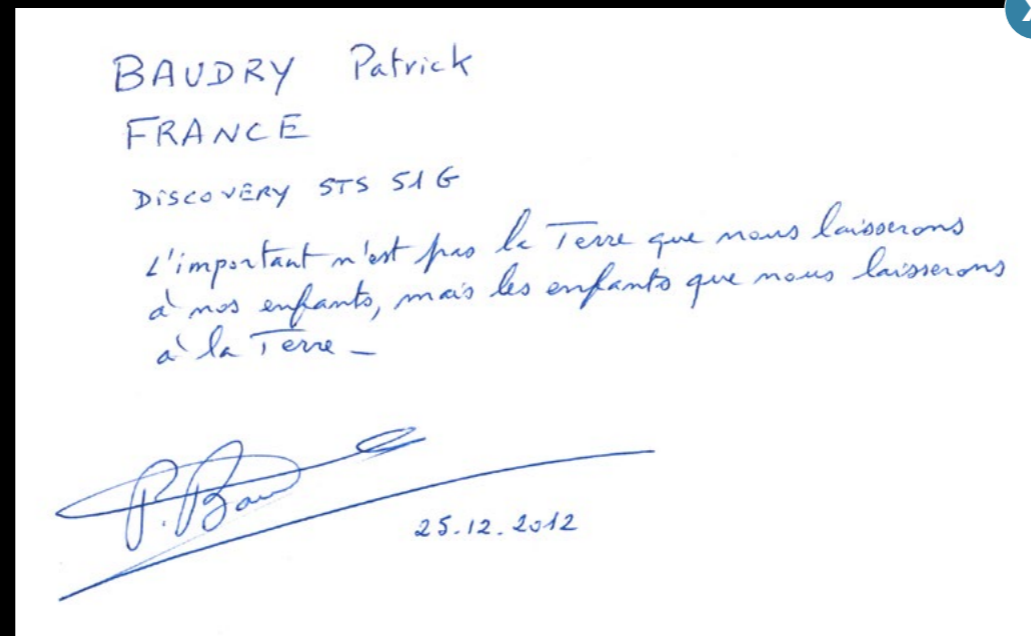 BAUDRY Patrick
FRANCE
DISCOVERY STS 51G
L'important n'est pas la Terre que nous laisserons
à nos enfants, mais les enfants que nous laisserons
à la Terre –
P. Bau
25.12.2012